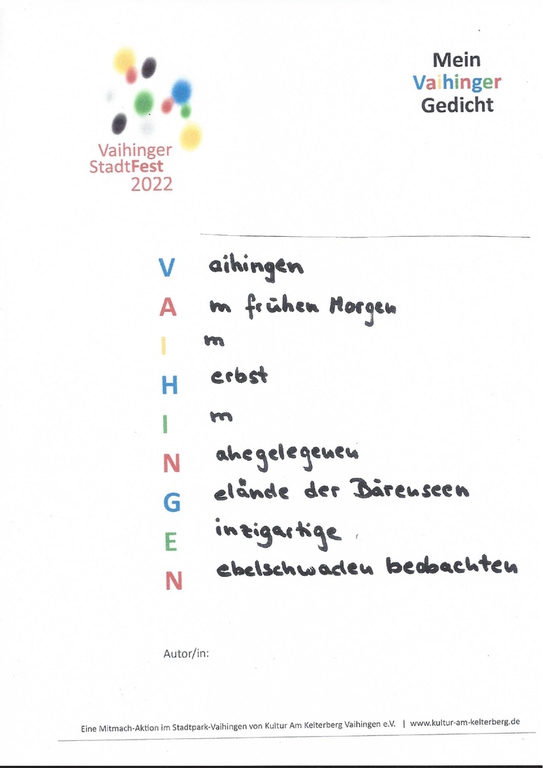 Mein
Vaihinger
Gedicht
Vaihinger
StadtFest
2022
V aihingen
A m frühen Morgen
I m
H erbst
I m
N ahegelegenen
G elände der Bärenseen
E inzigartige
N ebelschwaden beobachten
Autor/in:
Eine Mitmach-Aktion im Stadtpark-Vaihingen von Kultur Am Kelterberg Vaihingen e.V. | www.kultur-am-kelterberg.de